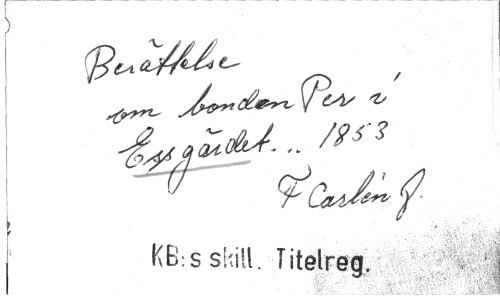 Berättelse
om bonden Per i
Essgärdet... 1853
F Carlén
KB:s skill. Titelreg.